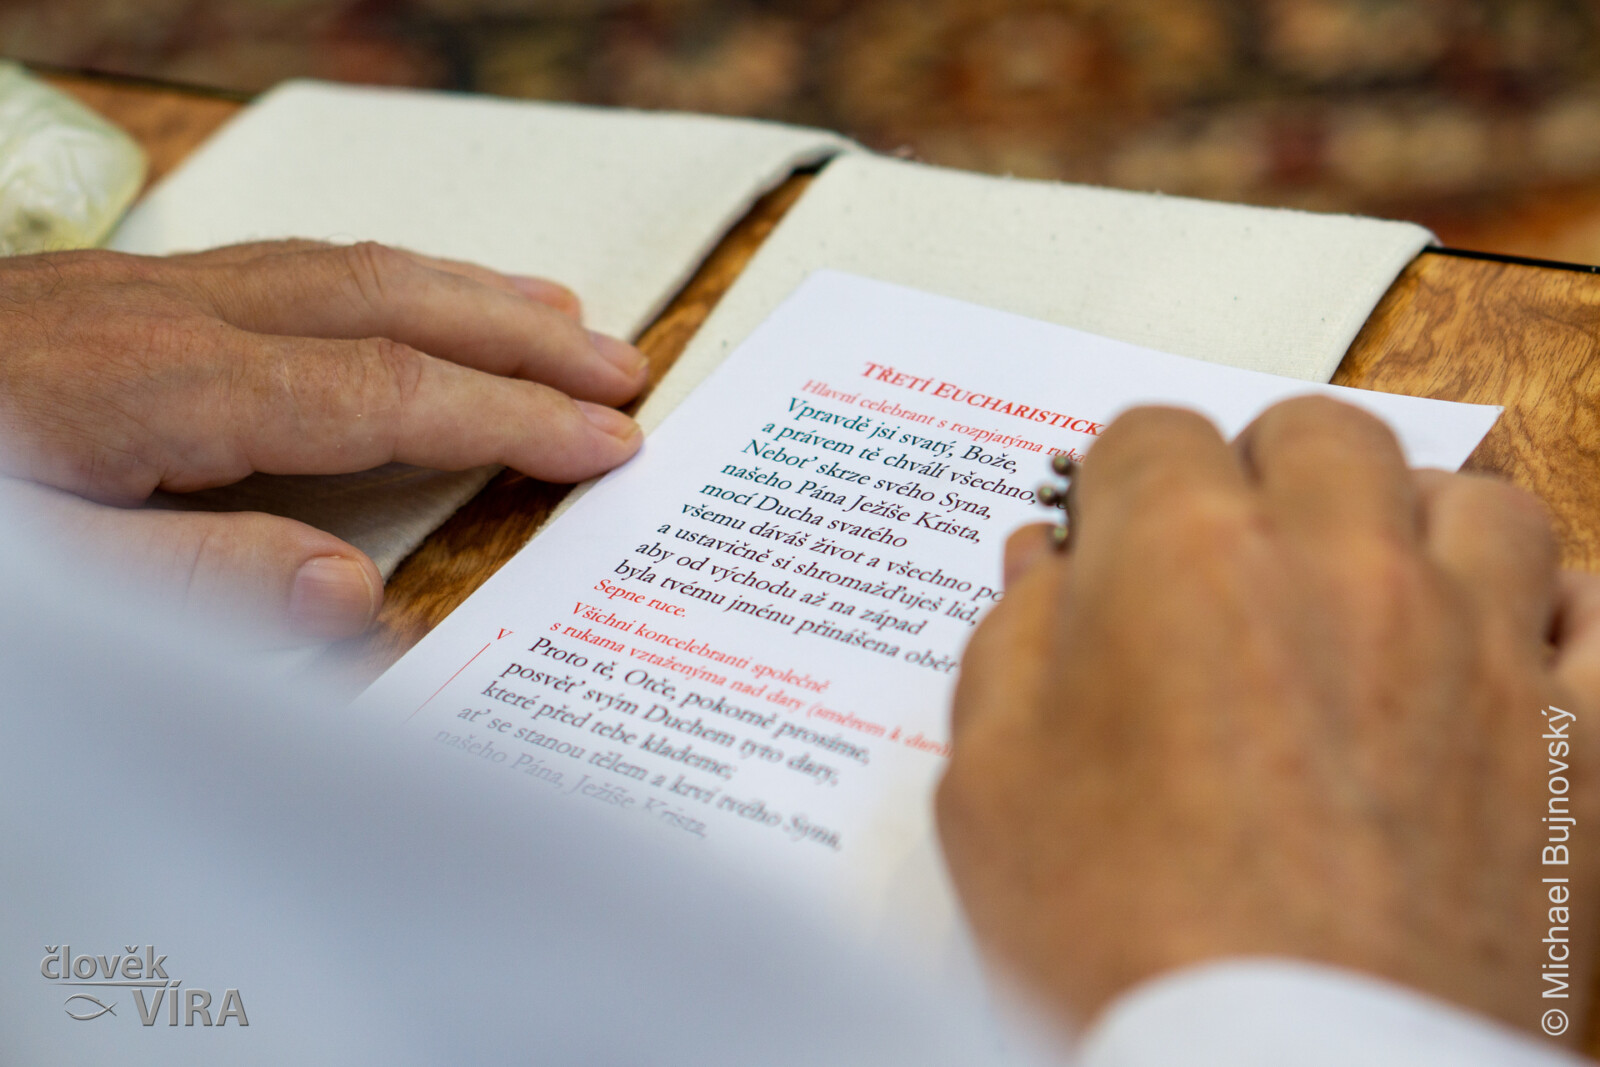 TŘETÍ EUCHARISTICK
Hlavní celebrant s rozpjatýma ruka
Vpravdě jsi svatý, Bože,
a právem tě chválí všechno,
Neboť skrze svého Syna,
našeho Pána Ježíše Krista,
mocí Ducha svatého
všemu dáváš život a všechno po
a ustavičně si shromažďuješ lid,
aby od východu až na západ
byla tvému jménu přinášena oběť
Sepne ruce.
Všichni koncelebranti společně
s rukama vztaženýma nad dary (směrem k darů
V Proto tě, Otče, pokorně prosíme,
posvěť svým Duchem tyto dary,
které před tebe klademe;
ať se stanou tělem a krví tvého Syna,
našeho Pána, Ježíše Krista,
člověk
VÍRA
© Michael Bujnovský